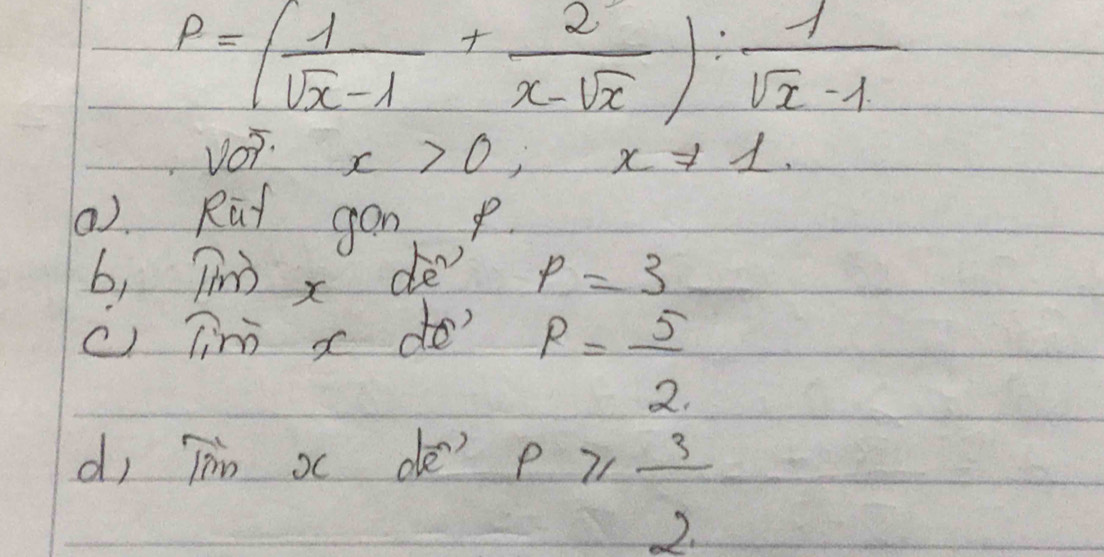 P = ( 1/(√x - 1) + 2/(x - √x) ) : 1/(√x - 1)
với x > 0; x ≠ 1.
a). Rút gọn P.
b, Tìm x để P = 3
c) Tìm x để P = 5/2.
d, Tìm x để P ≥ 3/2.